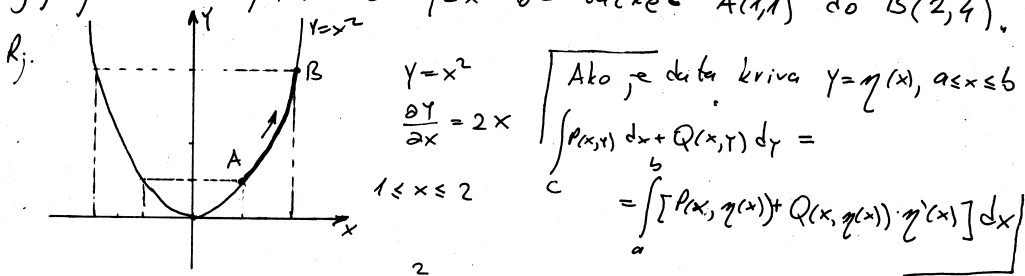 y=x² od tačke A(1,1) do B(2,4).
Rj.
y
y=x²
B
A
x
y=x²
∂y/∂x = 2x
1≤x≤2
Ako je data kriva y=η(x), a≤x≤b
∫_C P(x,y) dx + Q(x,y) dy =
= ∫_a^b [P(x, η(x)) + Q(x, η(x))·η'(x)] dx
2